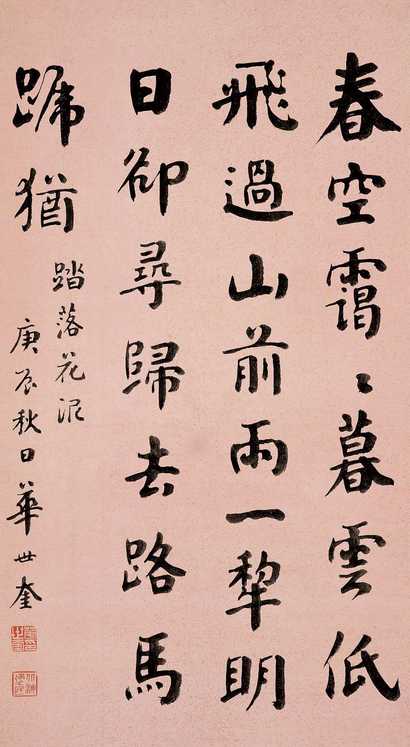 春空靄〻暮雲低
飛過山前雨一犂明
日卻尋歸去路馬
蹄猶
踏落花泥
庚辰秋日華世奎